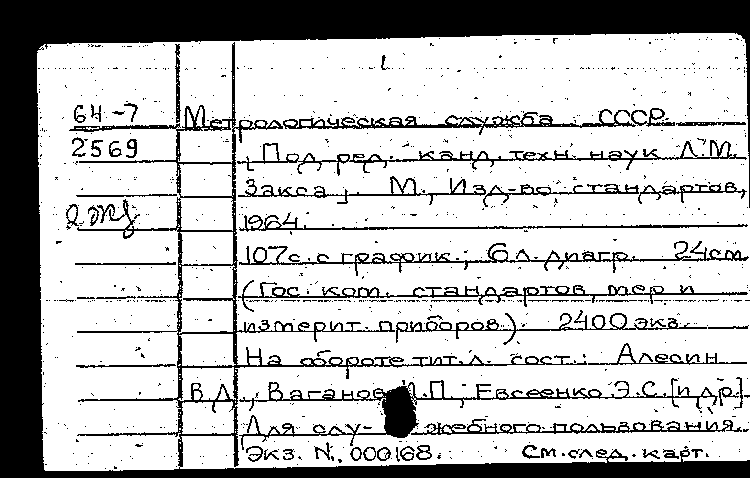 1
64-7 Метрологическая служба СССР.
2569 [Под ред. канд. техн. наук Л.М.
Закса]. М., Изд-во стандартов,
2 экз 1964.
107с. с график.; 6 л. диагр. 24см
(Гос. ком. стандартов, мер и
измерит. приборов). 2400 экз.
На обороте тит. л. сост.: Алесин
В.Д., Ваганов .П., Евсеенко Э.С. [и др.]
Для слу- жебного пользования.
Экз. N. 000168. См. след. карт.